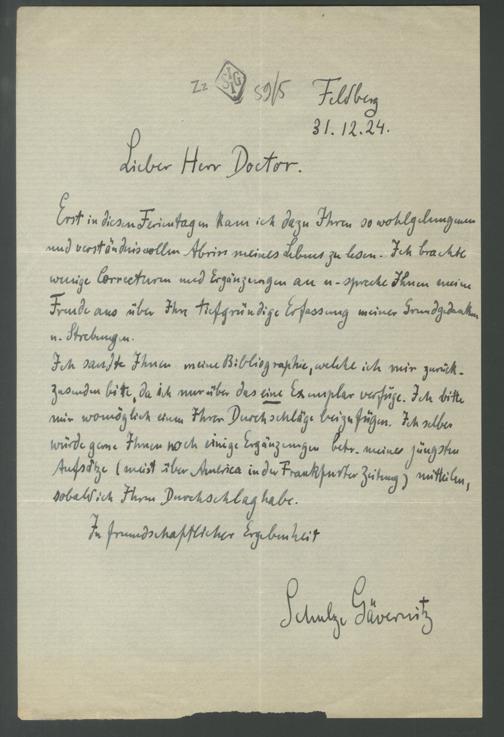 Zz SIG 59/5
Feldberg
31.12.24.
Lieber Herr Doctor.
Erst in diesen Ferientagen kam ich dazu Ihren so wohlgelungenen
und verständnisvollen Abriss meines Lebens zu lesen. Ich brachte
wenige Correcturen und Ergänzungen an u. spreche Ihnen meine
Freude aus über Ihre tiefgründige Erfassung meiner Grundgedanken
u. Strebungen.
Ich sandte Ihnen meine Bibliographie, welche ich mir zurück-
zusenden bitte, da ich nur über das eine Exemplar verfüge. Ich bitte
mir womöglich einen Ihrer Durchschläge beizufügen. Ich selber
würde gerne Ihnen noch einige Ergänzungen betr. meiner jüngsten
Aufsätze (meist über America in der Frankfurter Zeitung) mitteilen,
sobald ich Ihren Durchschlag habe.
In freundschaftlicher Ergebenheit
Schulze Gävernitz